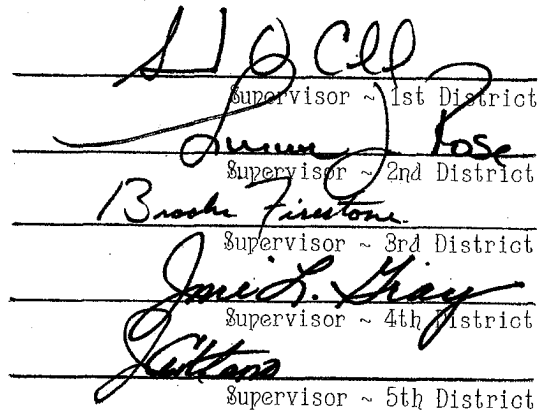 Supervisor ~ 1st District
Rose
Supervisor ~ 2nd District
Brooks Firestone
Supervisor ~ 3rd District
Joni L. Gray
Supervisor ~ 4th District
Supervisor ~ 5th District